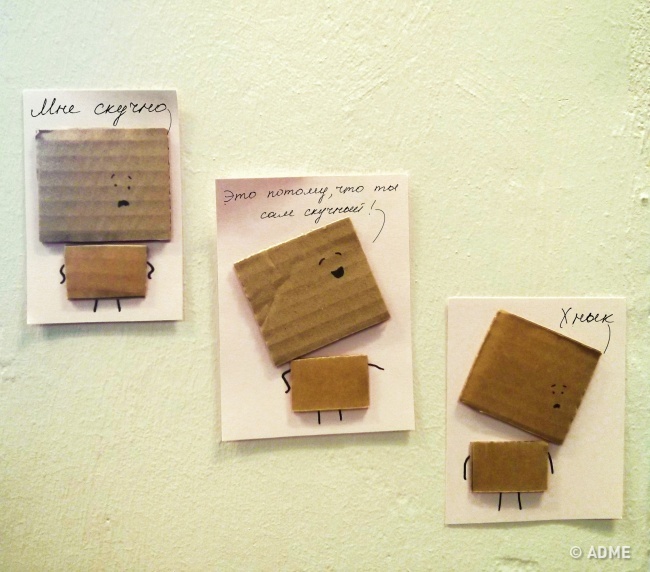 Мне скучно
Это потому, что ты
сам скучный!
Хнык
© ADME